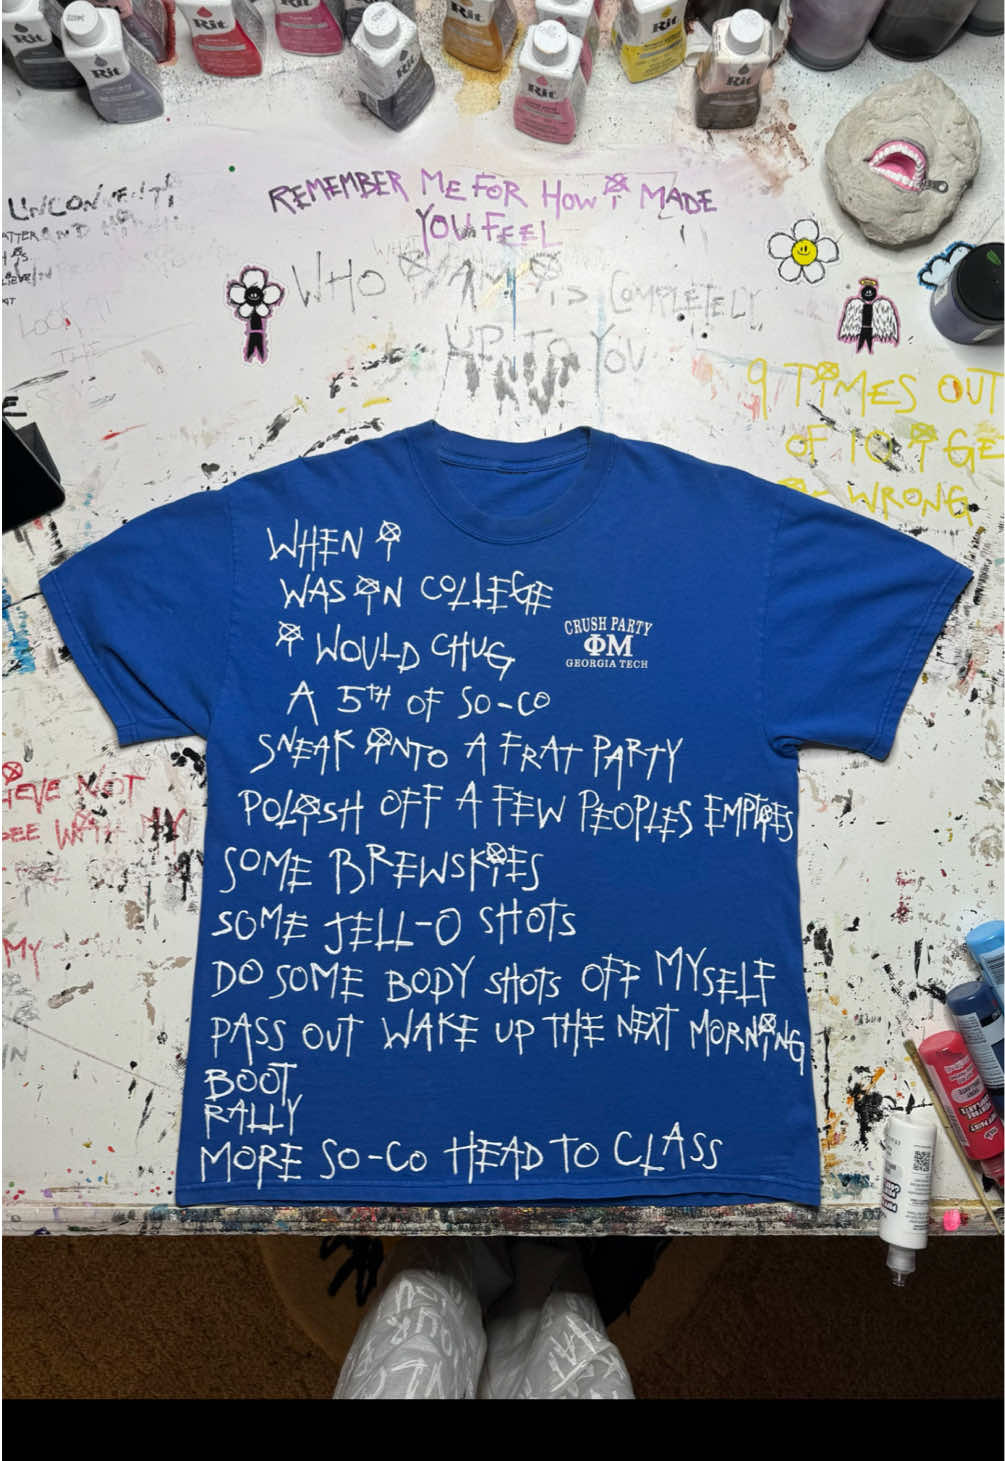 Rit
Rit
Rit
Rit
Rit
Rit
Rit
Rit
Rit
REMEMBER ME FOR HOW I MADE
YOU FEEL
WHO I AM IS COMPLETELY
UP TO YOU
9 TIMES OUT
OF 10 I GE
WRONG
WHEN I
WAS IN COLLEGE
I WOULD CHUG
A 5TH OF SO-CO
SNEAK INTO A FRAT PARTY
POLISH OFF A FEW PEOPLES EMPTIES
SOME BREWSKIES
SOME JELL-O SHOTS
DO SOME BODY SHOTS OFF MYSELF
PASS OUT WAKE UP THE NEXT MORNING
BOOT
RALLY
MORE SO-CO HEAD TO CLASS
CRUSH PARTY
ΦM
GEORGIA TECH
IEVE NOT
EE WITH MY
MY